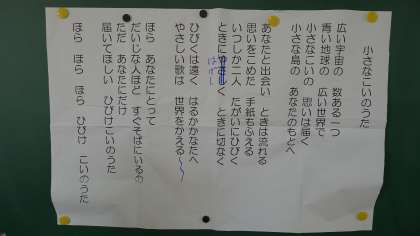 小さなこいのうた
広い宇宙の 数ある一つ
青い地球の 広い世界で
小さなこいの 思いは届く
小さな島の あなたのもとへ
あなたと出会い ときは流れる
思いをこめた 手紙もふえる
いつしか二人 たがいにひびく
ときにやさしく ときに切なく
はげし
ひびくは遠く はるかかなたへ
やさしい歌は 世界をかえる
ほら あなたにとって
だいじな人ほど すぐそばにいるの
ただ あなたにだけ
届いてほしい ひびけこいのうた
ほら ほら ほら ひびけ こいのうた